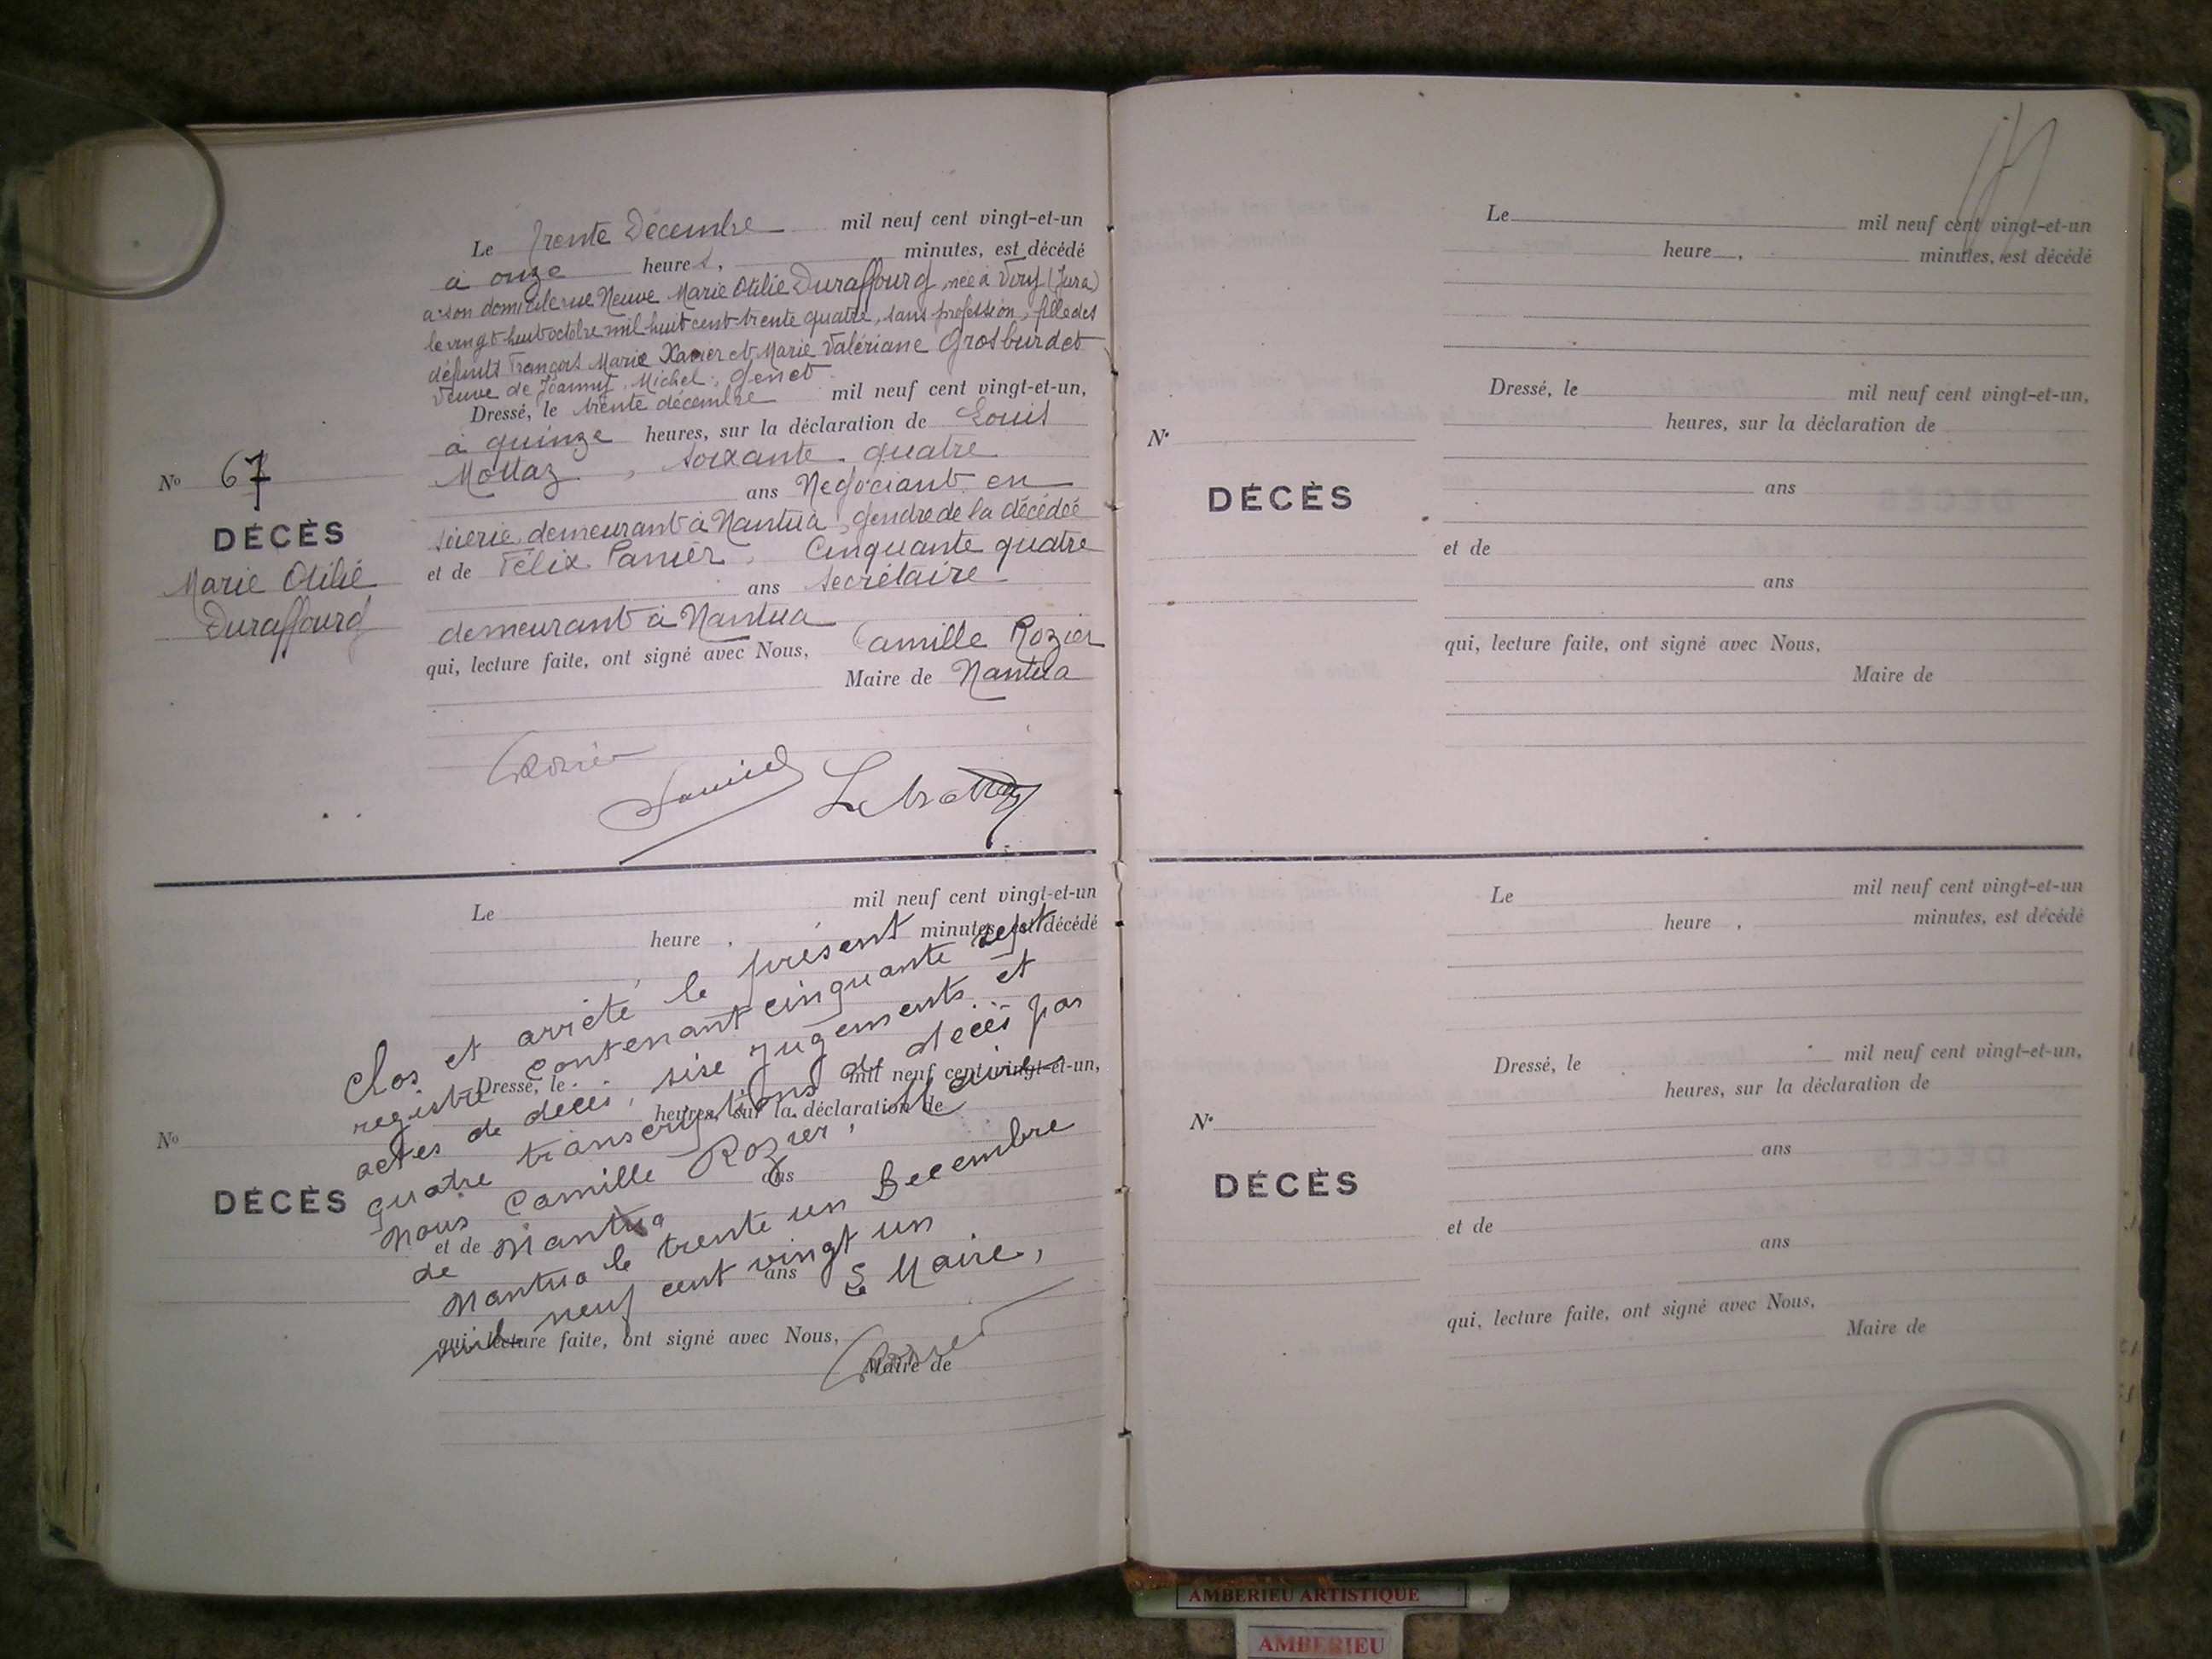 Le trente Décembre mil neuf cent vingt-et-un
à onze heures, minutes, est décédé
à son domicile rue Neuve Marie Otilie Duraffourg, née à Viry (Jura)
le vingt huit octobre mil huit cent trente quatre, sans profession, fille des
défunts François Marie Xavier et Marie Valériane Grosburdet
Veuve de Joanny, Michel, Genet
Dressé, le trente décembre mil neuf cent vingt-et-un,
à quinze heures, sur la déclaration de Louis
Mottaz, soixante quatre
ans Négociant en
soierie, demeurant à Nantua, gendre de la décédée
et de Félix Panier, Cinquante quatre
ans secrétaire
demeurant à Nantua
qui, lecture faite, ont signé avec Nous, Camille Rozier
Maire de Nantua
No 67
DÉCÈS
Marie Otilie
Duraffourg
Le mil neuf cent vingt-et-un
heure , minutes, est décédé
Dressé, le mil neuf cent vingt-et-un,
heures, sur la déclaration de
No
DÉCÈS
ans
et de
ans
qui, lecture faite, ont signé avec Nous,
Maire de
Clos et arrêté le présent
registre contenant cinquante sept
actes de décès, sise jugements et
quatre transcriptions de décès par
Nous Camille Rozier, Maire
de Nantua
Nantua le trente un Decembre
mil neuf cent vingt un
Le Maire,
Le mil neuf cent vingt-et-un
heure , minutes, est décédé
Dressé, le mil neuf cent vingt-et-un,
heures, sur la déclaration de
N°
DÉCÈS
ans
et de
ans
qui, lecture faite, ont signé avec Nous,
Maire de
Le mil neuf cent vingt-et-un
heure , minutes, est décédé
Dressé, le mil neuf cent vingt-et-un,
heures, sur la déclaration de
N°
DÉCÈS
ans
et de
ans
qui, lecture faite, ont signé avec Nous,
Maire de
AMBERIEU ARTISTIQUE
AMBERIEU